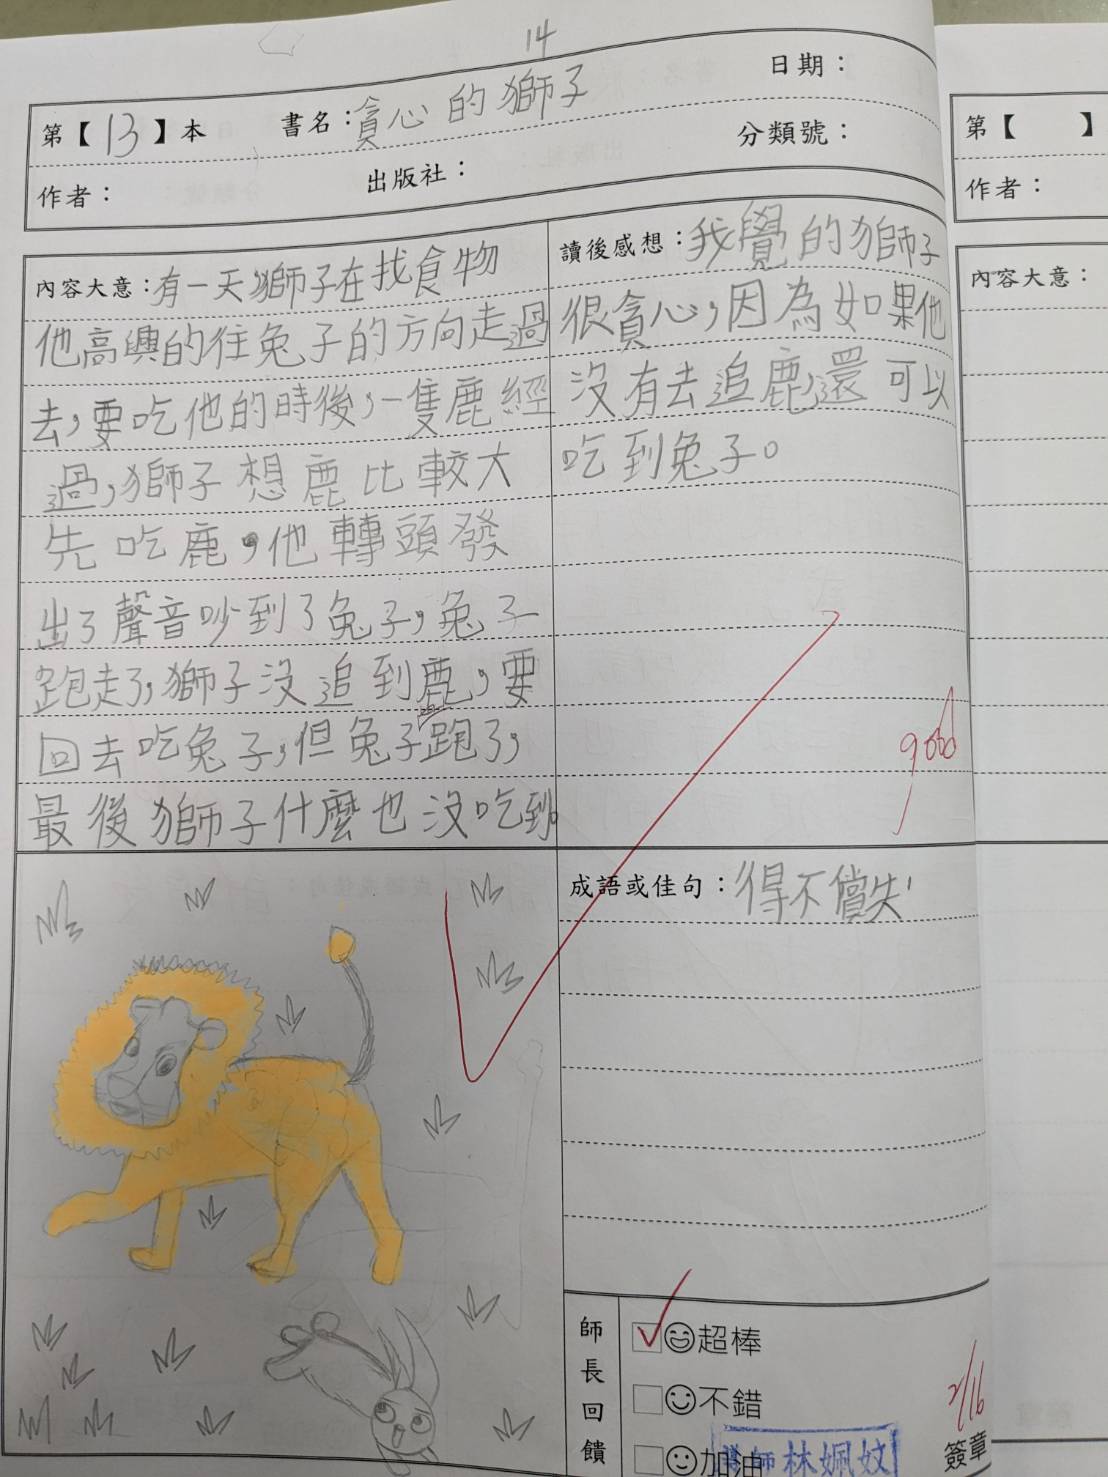 14
第【13】本 書名：貪心的獅子 日期：
作者： 出版社： 分類號：
內容大意：有一天獅子在找食物
他高興的往兔子的方向走過
去，要吃他的時後，一隻鹿經
過，獅子想鹿比較大
先吃鹿，他轉頭發
出了聲音吵到了兔子，兔子
跑走了，獅子沒追到鹿，要
回去吃兔子，但兔子跑了，
最後獅子什麼也沒吃到。
讀後感想：我覺的獅子
很貪心，因為如果他
沒有去追鹿，還可以
吃到兔子。
good
成語或佳句：得不償失
師長回饋
超棒
不錯
加油
師林姵妏
2/16
簽章
第【 】
作者：
內容大意：